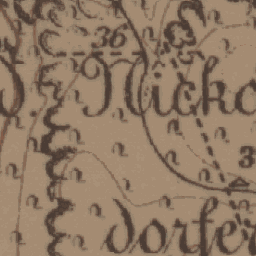 36
Nicko
3
dorfer